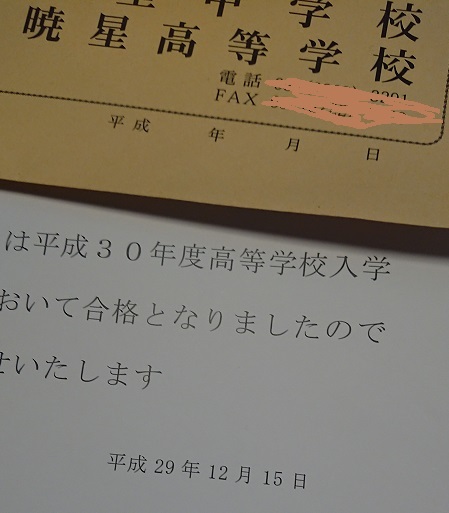 中学校
暁星高等学校
電話
FAX
平成 年 月 日
は平成30年度高等学校入学
おいて合格となりましたので
せいたします
平成29年12月15日